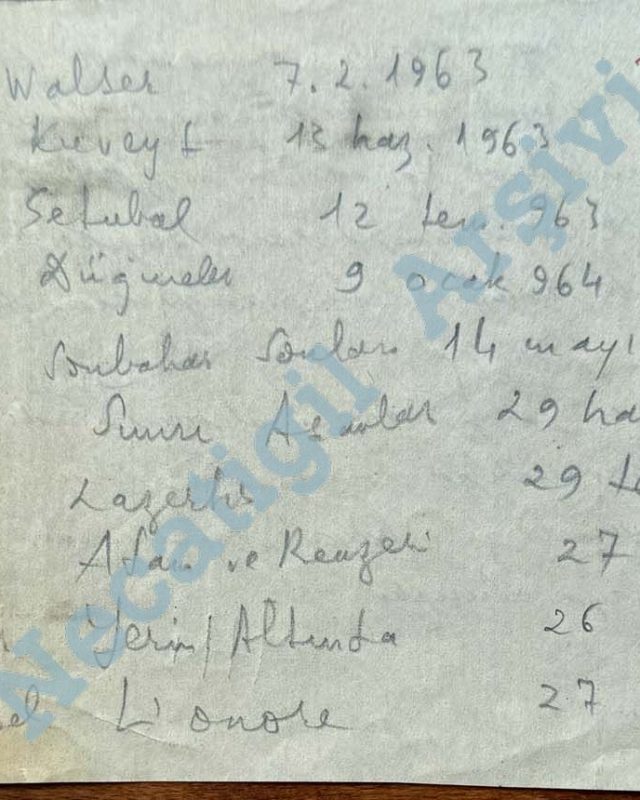 Walser 7.2.1963
Kuveyt 13 haz. 1963
Setubal 12 tem. 963
Düğmeler 9 ocak 964
Sonbahar Sonları 14 mayı
Sınırı Aşanlar 29 ha
Lazertis 29 te
Atam ve Benzeri 27
Yerin/Altında 26
L'onore 27
Necatigil Arşivi